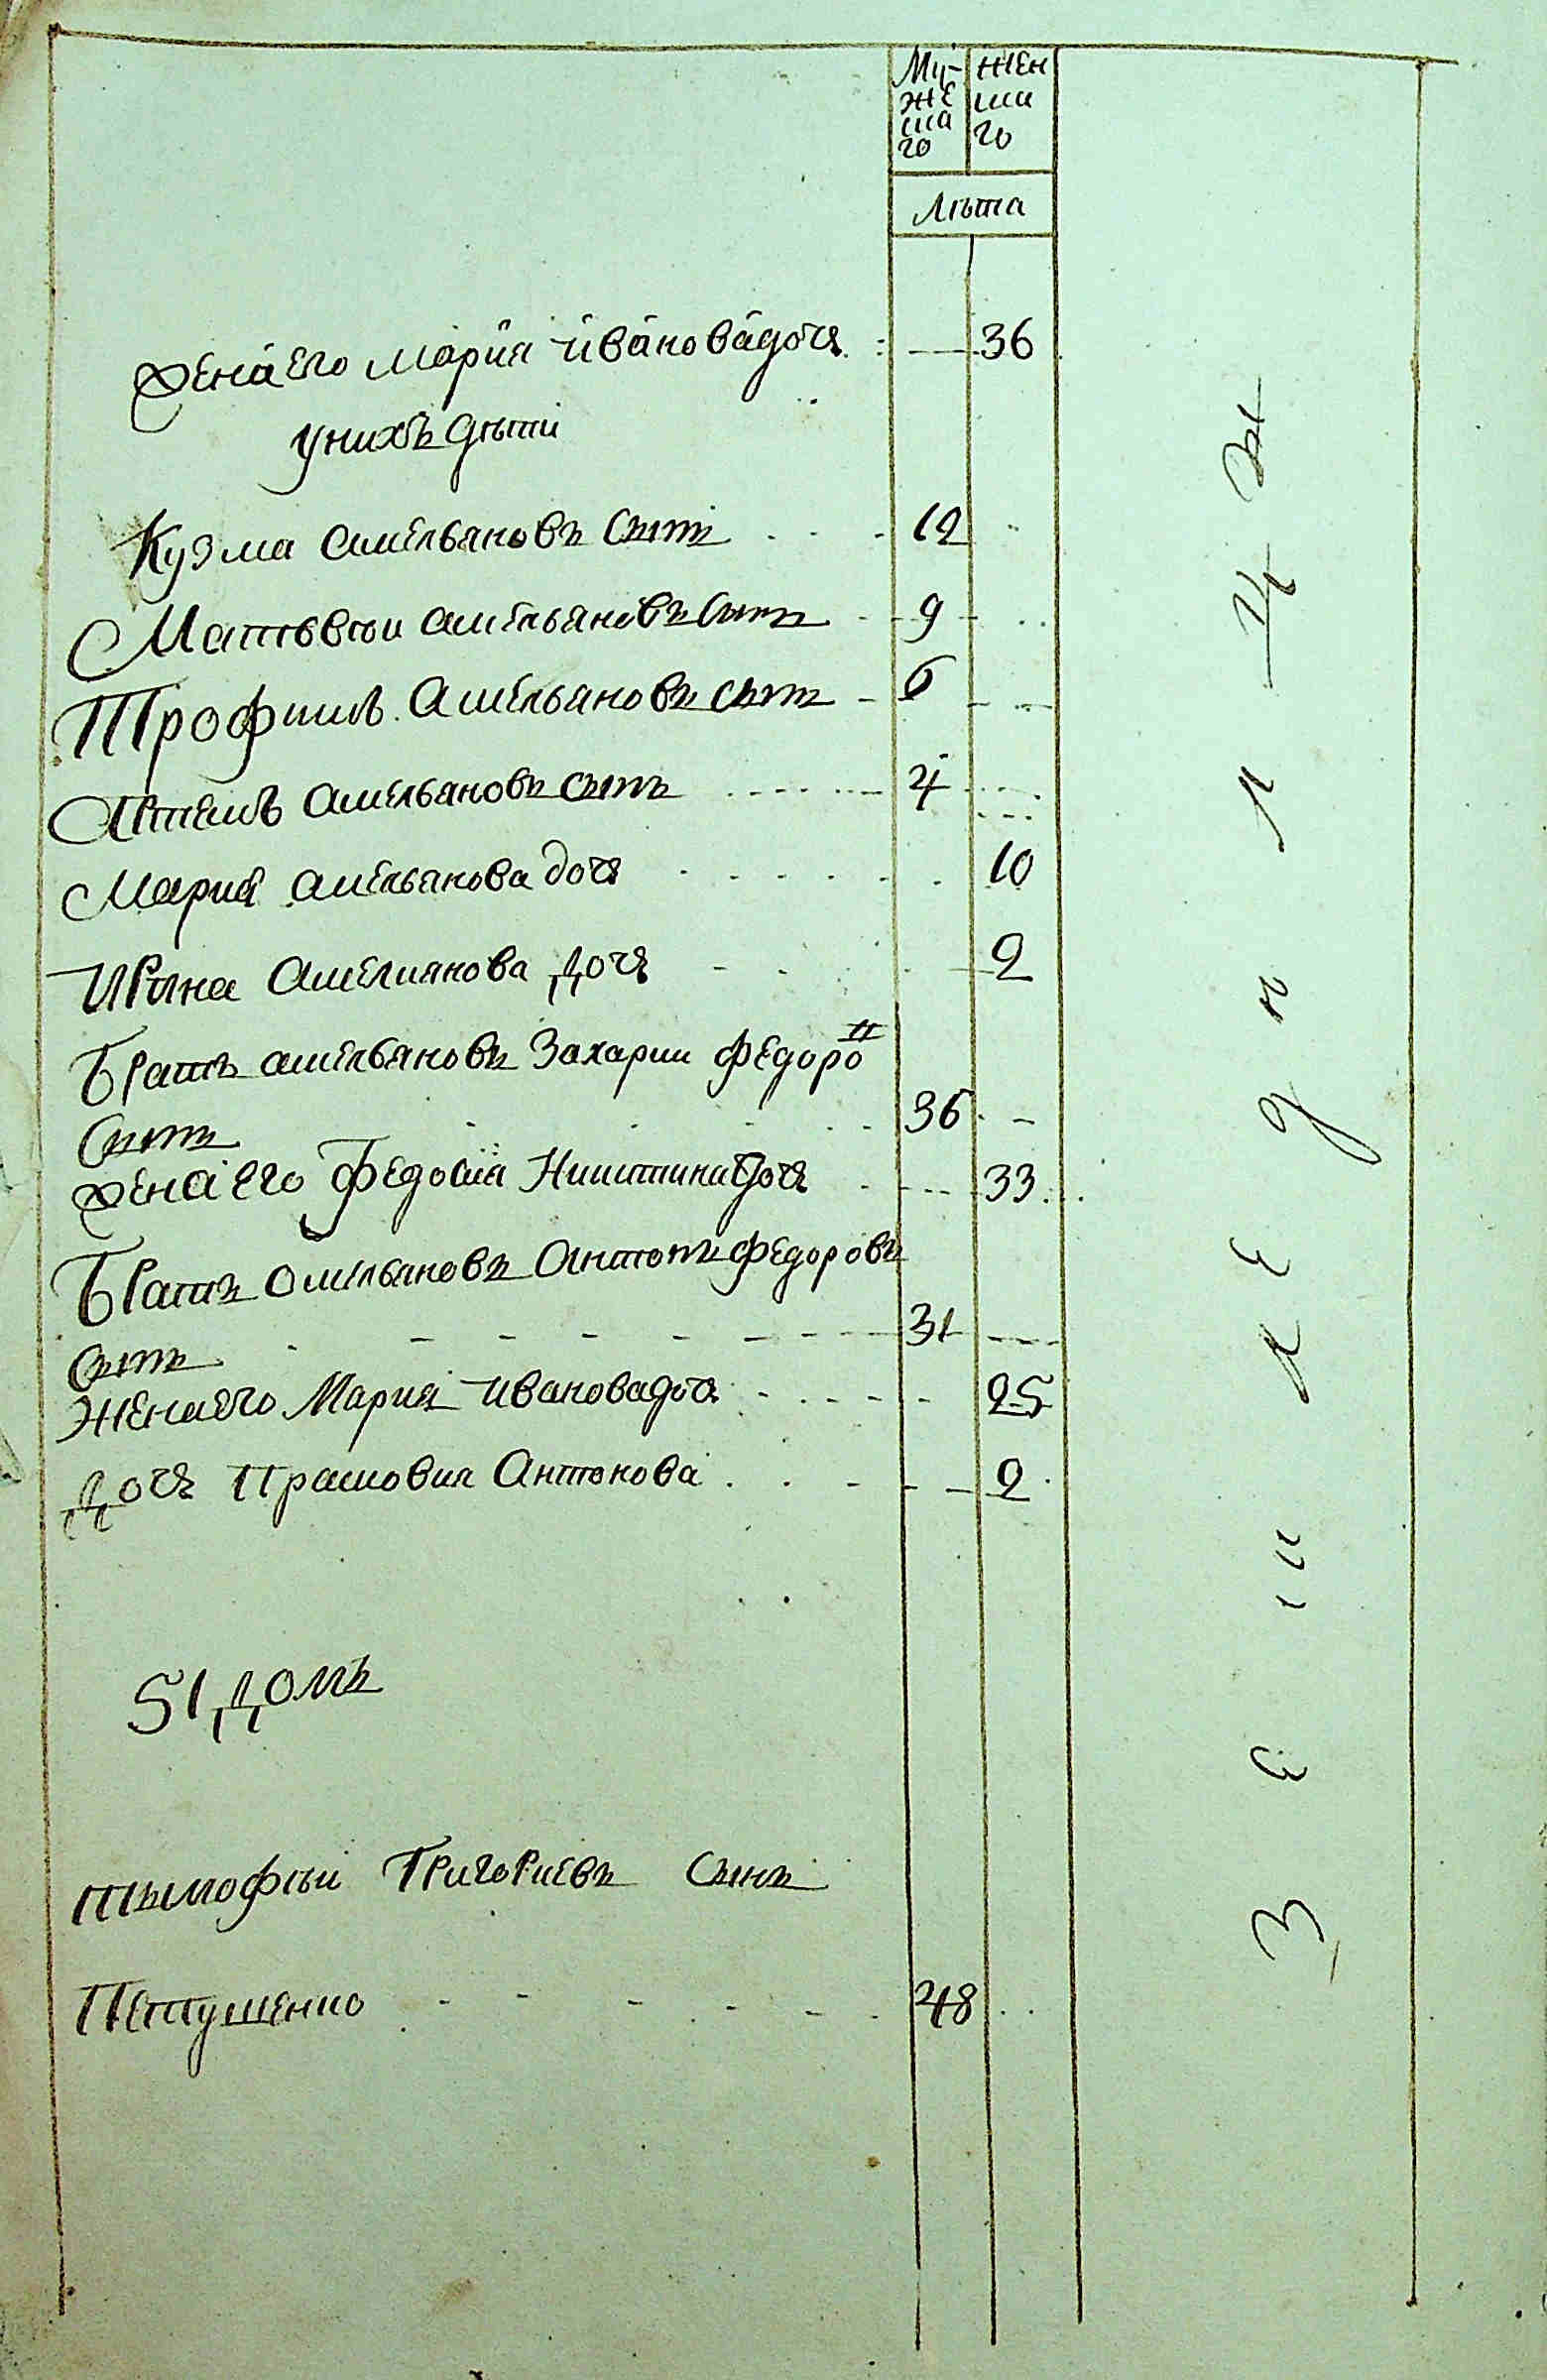 Му-
же
ска
го
жен
ска
го
Лѣта
жена его Мария Иванова дочь 36
у нихъ дѣти
Кузма Амельяновъ сынъ 12
Матѣвѣи Амельяновъ сынъ 9
Трофимъ Амельяновъ сынъ 6
Артемъ Амельяновъ сынъ 4
Мария Амельянова дочь 10
Ирина Амелиянова дочь 2
Братъ Амельяновъ Захарии Федоро
сынъ 36
жена его Федосия Никитина дочь 33
Братъ Омельяновъ Антонъ Федоровъ
сынъ 31
жена его Мария Иванова дочь 25
дочь Прасковия Антонова 2
51 домъ
Тымофѣи Григориевъ сынъ
Петушенко 48
Земледѣлцы